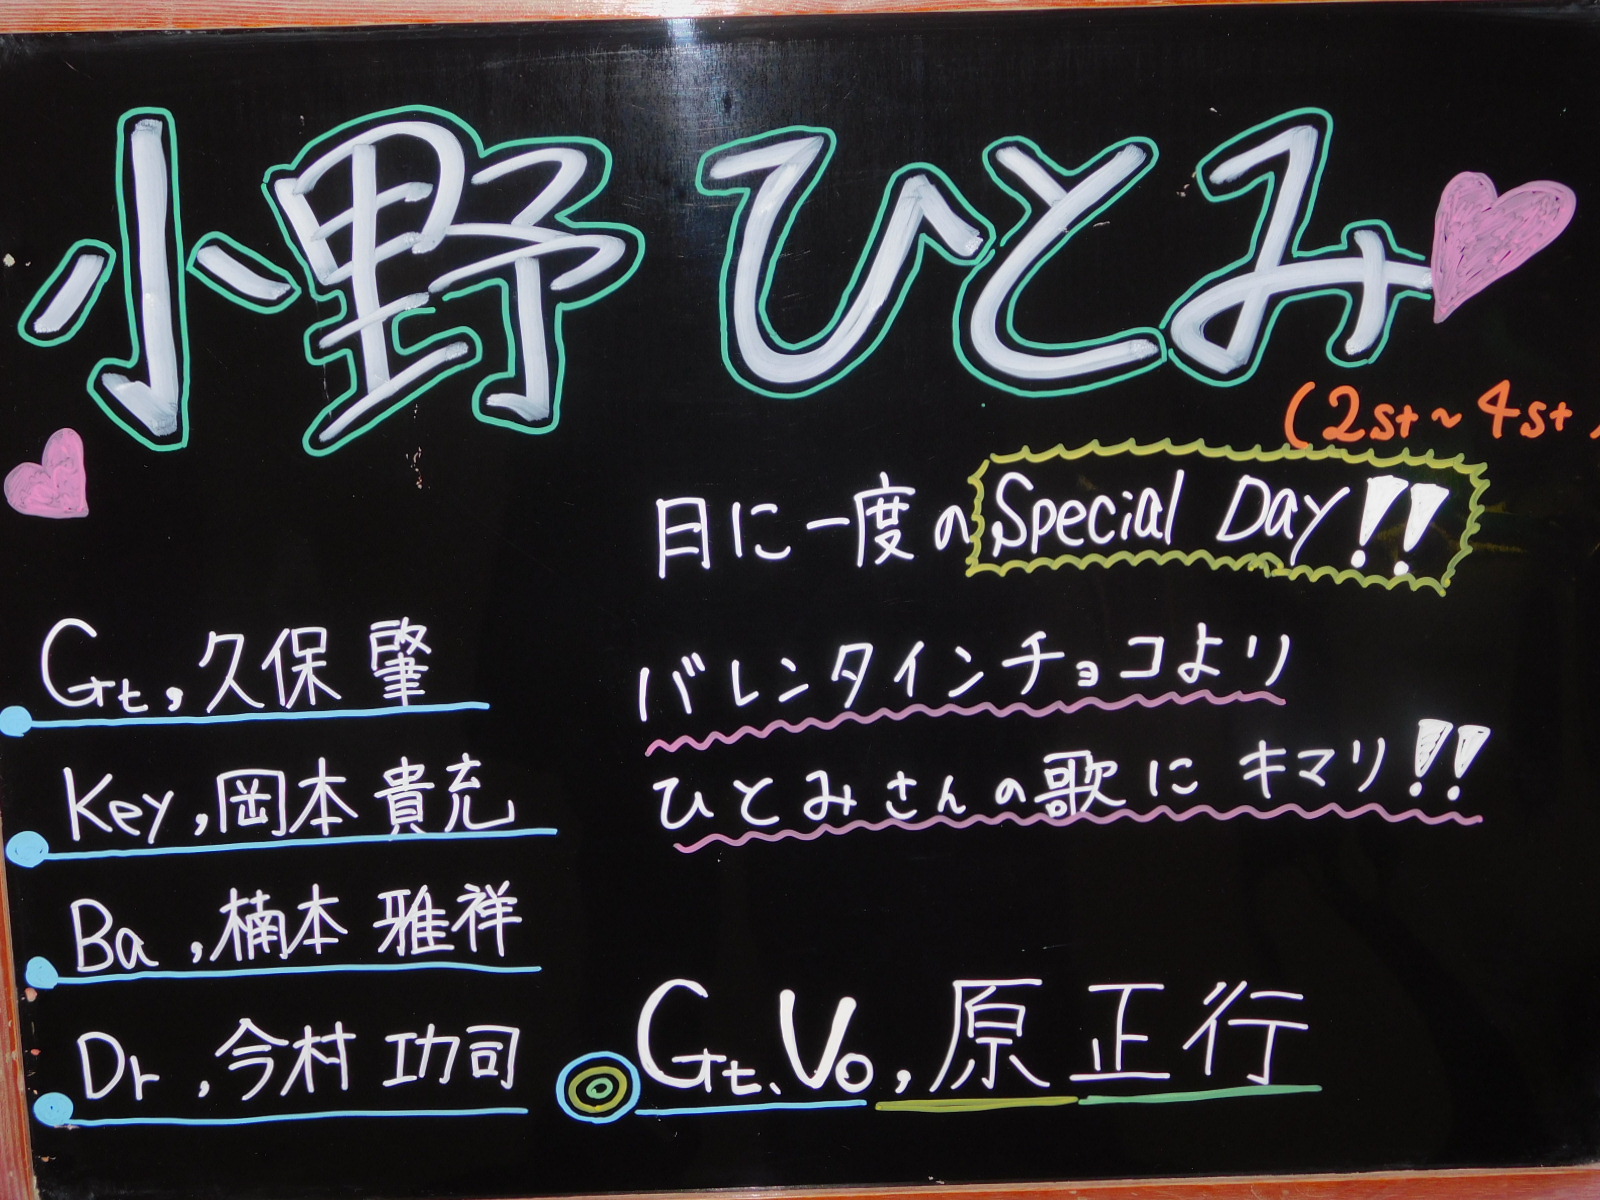 小野ひとみ
(2st~4st)
月に一度のSpecial Day!!
バレンタインチョコより
ひとみさんの歌にキマリ!!
Gt,久保 肇
Key,岡本 貴充
Ba,楠本 雅祥
Dr,今村 功司
Gt、Vo,原 正行